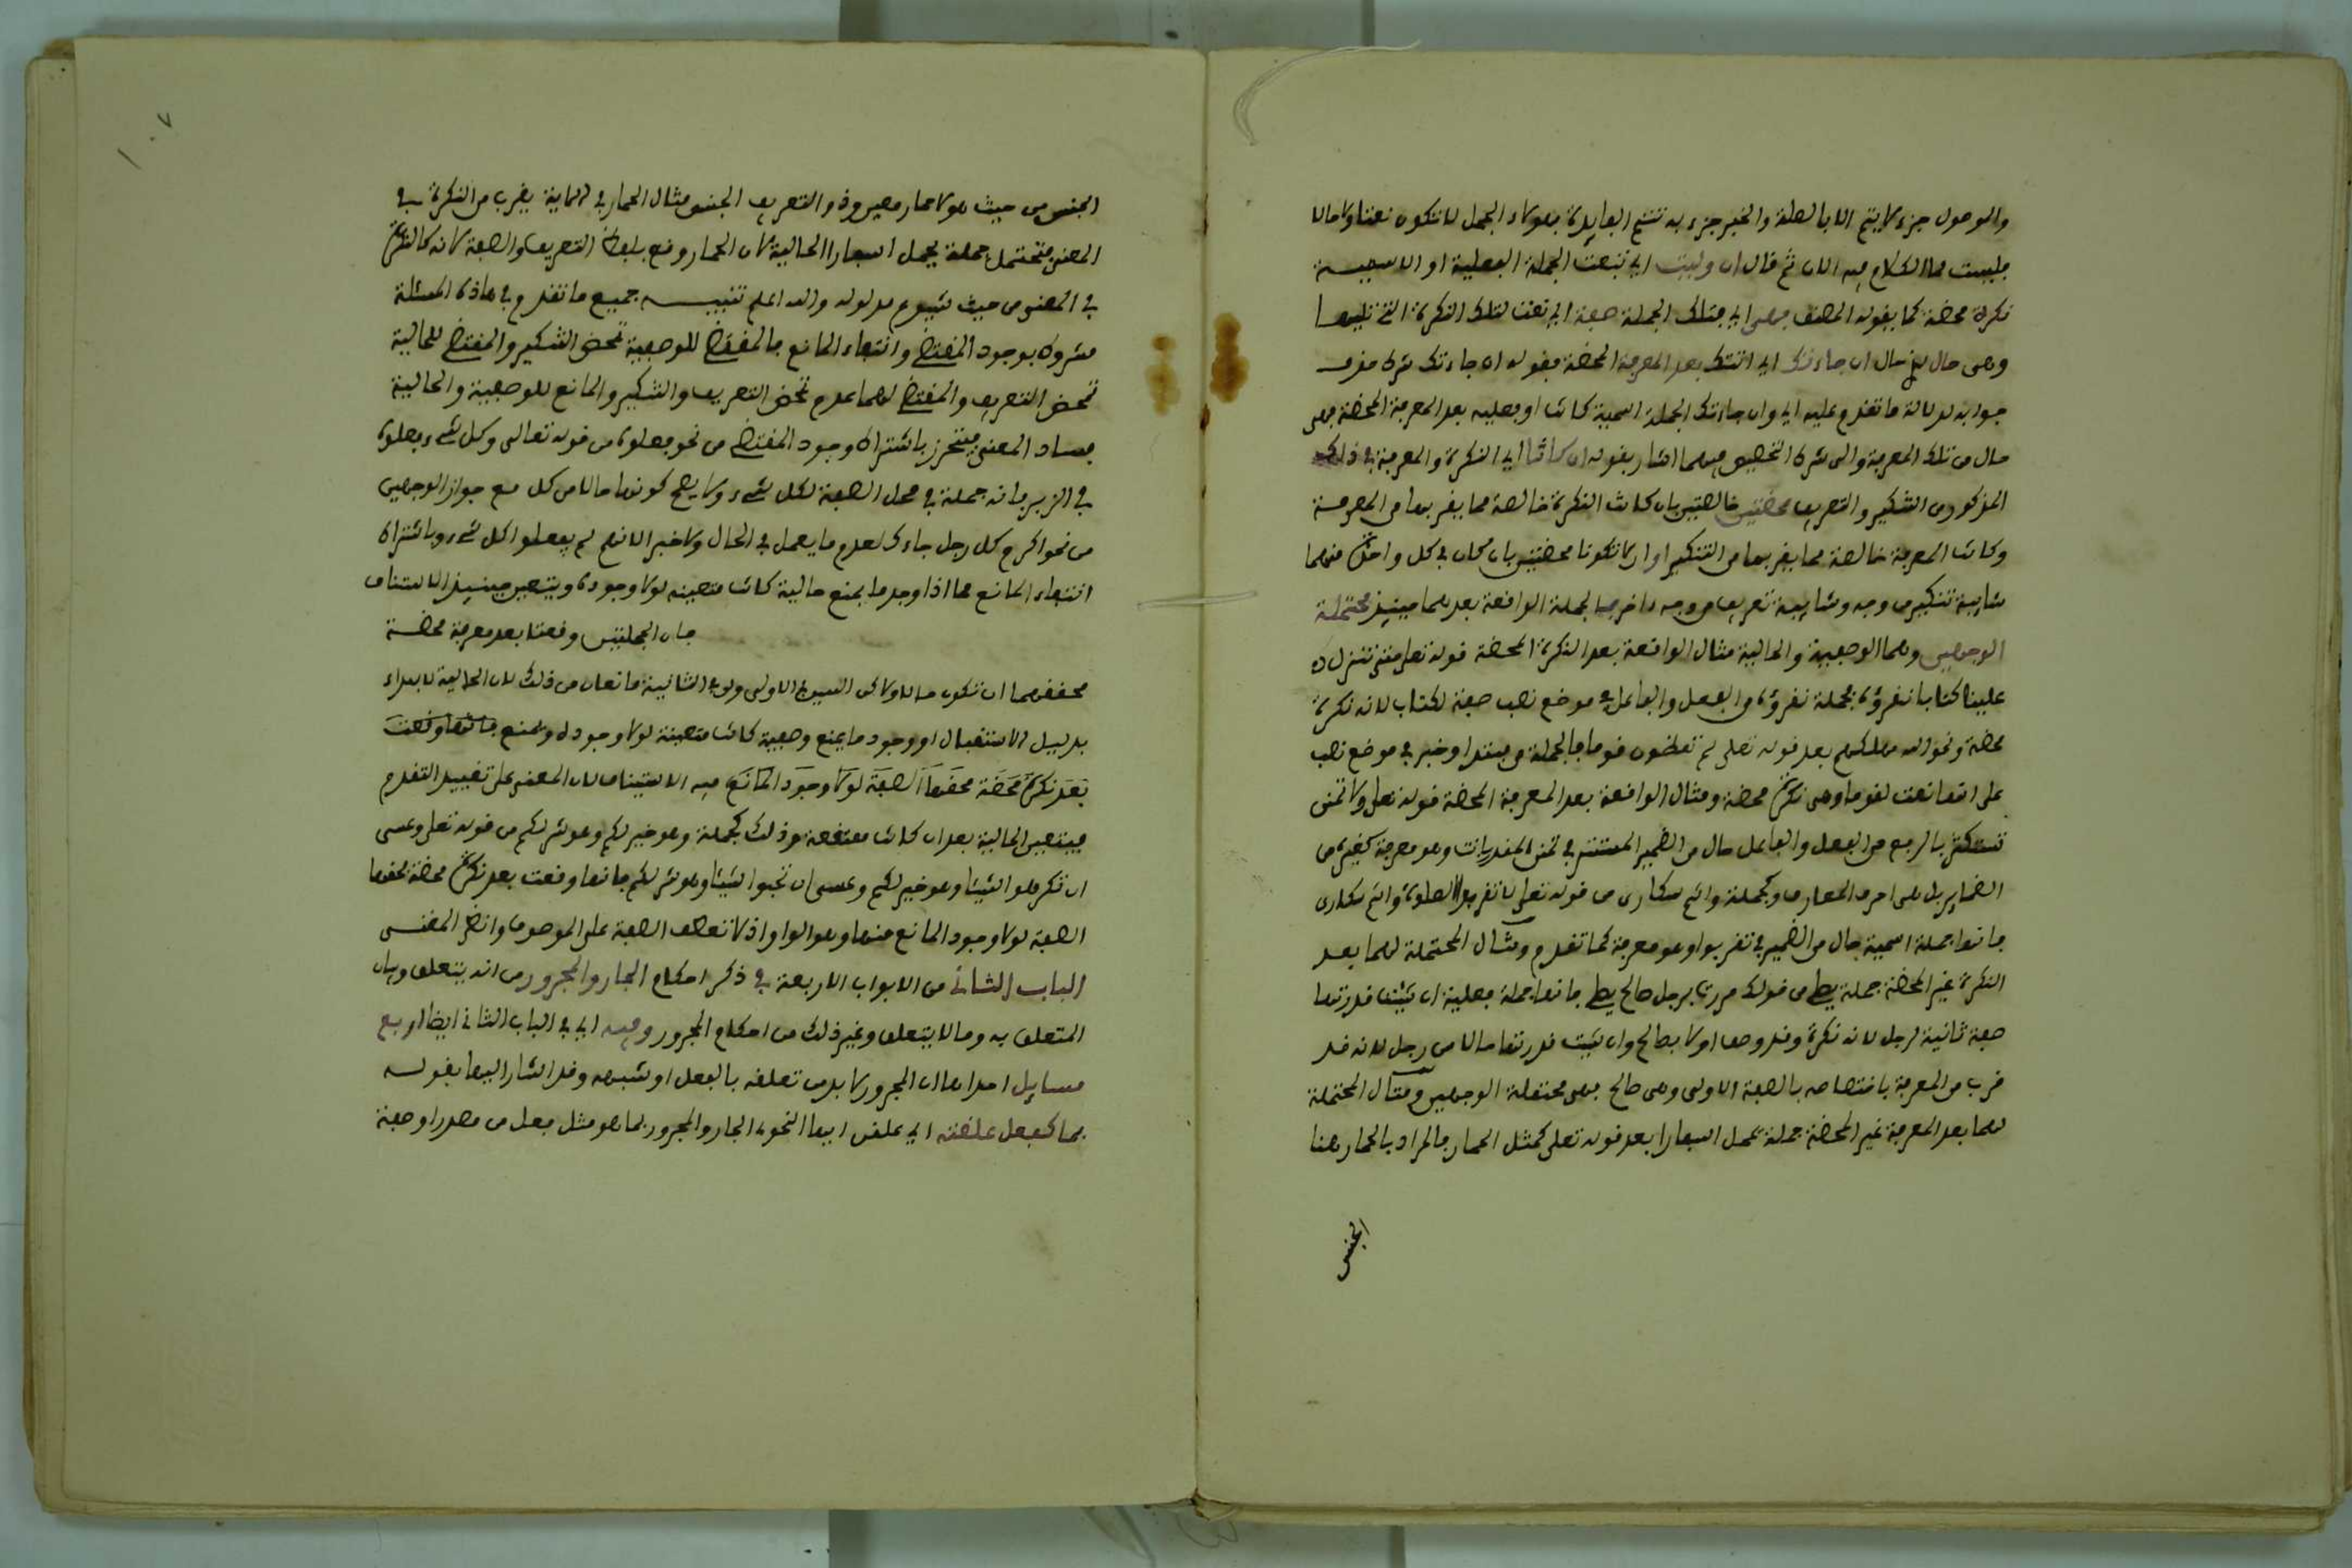 والموصول جزء لا يتم الا بالصلة والخبر جزء به تتتم الفايدة فهولاء الجمل لا تكون نعتا ولا حالا
فليست مما الكلام فيه الان ثم قال ان وليت اي تبعت الجملة الفعلية او الاسمية
نكرة محضة كما يقوله المصنف فهى اي فتلك الجملة صفة اي نعت لتلك النكرة التي تليها
وهى حال اي حال ان جاءتك اي اتتك بعد المعرفة المحضة فقوله ان جاءتك شرط حذف
جوابه لدلالة ما تقدم عليه اي وان جاءتك الجملة اسمية كانت او فعليه بعد المعرفة المحضة فهى
حال من تلك المعرفة والى شرط التخصيص فيهما اشار بقوله ان كانتا اي النكرة والمعرفة في ذلك
المذكور من التنكير والتعريف محضتين خالصتين بان كانت النكرة خالصة مما يقربها من المعرفة
وكانت المعرفة خالصة مما يقربها من التنكير او ان لا تكونا محضتين بان كان في كل واحدة منهما
شايبة تنكير من وجه وشايبة تعريف من وجه اخر فالجملة الواقعة بعدهما حينيذ محتملة
الوجهين وهما الوصفية والحالية مثال الواقعة بعد النكرة المحضة قوله تعلى حتى تنزل
علينا كتابا نقرؤه فجملة نقرؤه من الفعل والفاعل في موضع نصب صفة لكتاب لانه نكرة
محضة ونحو الله مهلكهم بعد قوله تعلى لم تعظون قوما فالجملة من مبتدا وخبر في موضع نصب
على انها نعت لقوما وهى نكرة محضة ومثال الواقعة بعد المعرفة المحضة قوله تعلى ولا تمنن
تستكثر بالرفع من الفعل والفاعل حال من الضمير المستتر في تمنن المقدر بانت وهو معرفة كغيره من
الضماير بل هى اعرف المعارف وكجملة وانتم سكارى من قوله تعلى لا تقربوا الصلوة وانتم سكارى
فانها جملة اسمية حال من الضمير في تقربوا وهو معرفة كما تقدم ومثال المحتملة لهما بعد
النكرة غير المحضة جملة يصلى من قولك مررت برجل صالح يصلى فانها جملة فعلية ان شيت قدرتها
صفة ثانية لرجل لانه نكرة وقد وصف اولا بصالح وان شيت قدرتها حالا من رجل لانه قد
قرب من المعرفة باختصاصه بالصفة الاولى وهى صالح فهى محتملة الوجهين ومثال المحتملة
لهما بعد المعرفة غير المحضة جملة يحمل اسفارا بعد قوله تعلى كمثل الحمار فالمراد بالحمار هنا
الجنس
١٠٧
الجنس من حيث هو لا حمار معين وذو التعريف الجنسى مثال الحمار في الاية يقرب من النكرة في
المعنى فتحتمل جملة يحمل اسفارا الحالية لان الحمار وقع بلفظ التعريف والصفة لانه كالنكرة
في المعنى من حيث شيوع مدلوله والله اعلم تنبيه جميع ما تقدم في هاذه المسئلة
مشروط بوجود المقتضى وانتفاء المانع فالمقتضى للوصفية تمحض التنكير والمقتضى للحالية
تمحض التعريف والمقتضى لهما عدم تمحض التعريف والتنكير والمانع للوصفية والحالية
فساد المعنى فتحرز باشتراط وجود المقتضى من نحو فعلوه من قوله تعالى وكل شىء فعلوه
في الزبر فانه جملة في محل الصفة لكل شىء ولا يصح كونها حالا من كل مع جواز الوجهين
من نحو اكرم كل رجل جاءك لعدم ما يعمل في الحال ولا خبرا لانهم لم يفعلوا كل شىء وباشتراط
انتفاء المانع مما اذا وجد ما يمنع حالية كانت متعينه لولا وجوده ويتعين حينيذ الاستيناف
فان الجملتين وقعتا بعد معرفة محضة
فحقهما ان تكون حالا ولاكن السين في الاولى ولن في الثانية مانعان من ذلك لان الحالية لا تبداء
بدليل الاستقبال او وجود ما يمنع وصفية كانت متعينة لولا وجوده ويمتنع فانها وقعت
بعد نكرة محضة فحقها الصفة لولا وجود المانع فيه الاستيناف لان المعنى على تقييد المتقدم
فيتعين الحالية بعد ان كانت ممتنعة وذلك كجملة وهو خير لكم وهو شر لكم من قوله تعلى وعسى
ان تكرهوا شيئا وهو خير لكم وعسى ان تحبوا شيئا وهو شر لكم فانها وقعت بعد نكرة محضة فحقها
الصفة لولا وجود المانع منها وهو الواو اذ لا تعطف الصفة على الموصوف وانظر المغنى
الباب الثانى من الابواب الاربعة في ذكر احكام الجار والمجرور من انه يتعلق وبيان
المتعلق به وما لا يتعلق وغير ذلك من احكام المجرور وفيه اي في الباب الثاني ايضا اربع
مسايل احداها ان المجرور لا بد من تعلقه بالفعل او شبهه وقد اشار اليها بقوله
بما كفعل علقته اي علقن ايها النحوي الجار والمجرور بما هو مثل فعل من مصدر او صفة